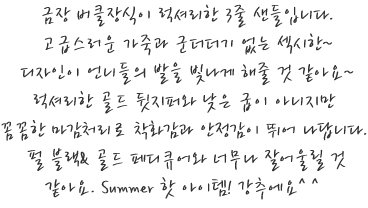 금장 버클장식이 럭셔리한 3줄 샌들입니다.
고급스러운 가죽과 군더더기 없는 섹시한~
디자인이 언니들의 발을 빛나게 해줄 것 같아요~
럭셔리한 골드 뒷지퍼와 낮은 굽이 아니지만
꼼꼼한 마감처리로 착화감과 안정감이 뛰어 나답니다.
펄 블랙& 골드 페디큐어와 너무나 잘어울릴 것
같아요. Summer 핫 아이템! 강추에요^^